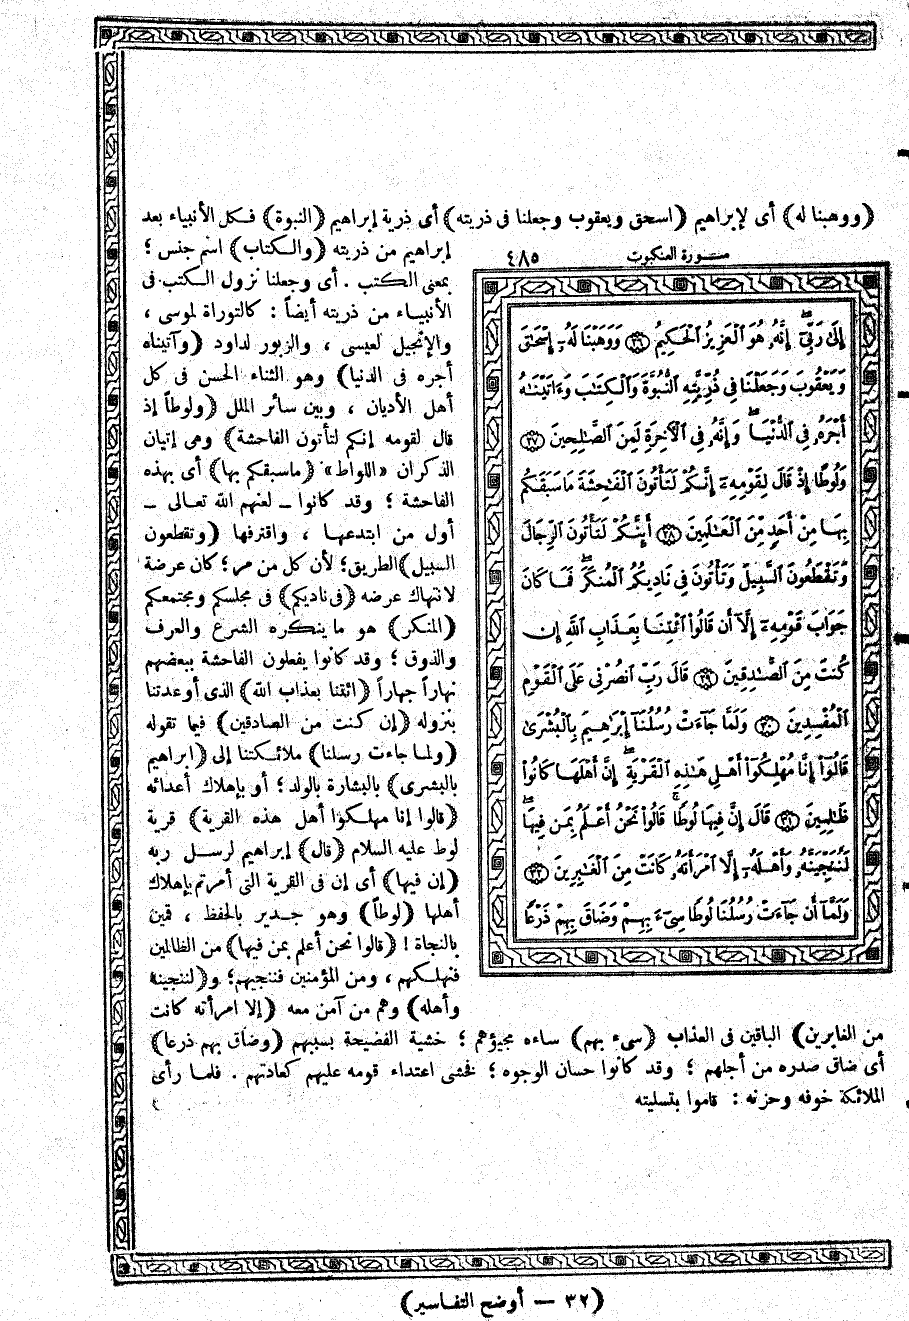 (ووهبنا له) أى لإبراهيم (اسحق ويعقوب وجعلنا فى ذريته) أى ذرية إبراهيم (النبوة) فكل الأنبياء بعد
إبراهيم من ذريته (والكتاب) اسم جنس ؛
بمعنى الكتب . أى وجعلنا نزول الكتب فى
الأنبياء من ذريته أيضاً : كالتوراة لموسى ،
والإنجيل لعيسى ، والزبور لداود (وآتيناه
أجره فى الدنيا) وهو الثناء الحسن فى كل
أهل الأديان ، وبين سائر الملل (ولوطاً إذ
قال لقومه إنكم لتأتون الفاحشة) وهى إتيان
الذكران «اللواط» (ماسبقكم بها) أى بهذه
الفاحشة ؛ وقد كانوا ـ لعنهم الله تعالى ـ
أول من ابتدعها ، واقترفها (وتقطعون
السبيل) الطريق؛ لأن كل من مر؛ كان عرضة
لانتهاك عرضه (فى ناديكم) فى مجلسكم ومجتمعكم
(المنكر) هو ما ينكره الشرع والعرف
والذوق ؛ وقد كانوا يفعلون الفاحشة ببعضهم
نهاراً جهاراً (ائتنا بعذاب الله) الذى أوعدتنا
بنزوله (إن كنت من الصادقين) فيما تقوله
(ولما جاءت رسلنا) ملائكتنا إلى (ابراهيم
بالبشرى) بالبشارة بالولد؛ أو بإهلاك أعدائه
(قالوا إنا مهلكوا أهل هذه القرية) قرية
لوط عليه السلام (قال) إبراهيم لرسل ربه
(إن فيها) أى إن فى القرية التى أمرتم بإهلاك
أهلها (لوطاً) وهو جدير بالحفظ ، قمين
بالنجاة ! (قالوا نحن أعلم بمن فيها) من الظالمين
فنهلكهم ، ومن المؤمنين فننجيهم؛ و(لننجينه
وأهله) وهم من آمن معه (إلا امرأته كانت
من الغابرين) الباقين فى العذاب (سىء بهم) ساءه مجيؤهم ؛ خشية الفضيحة بسببهم (وضاق بهم ذرعا)
أى ضاق صدره من أجلهم ؛ وقد كانوا حسان الوجوه ؛ فخشى اعتداء قومه عليهم كعادتهم . فلما رأى
الملائكة خوفه وحزنه : قاموا بتسليته
سورة العنكبوت ٤٨٥
إِلَىٰ رَبِّىٓ إِنَّهُۥ هُوَ ٱلْعَزِيزُ ٱلْحَكِيمُ ٢٦ وَوَهَبْنَا لَهُۥٓ إِسْحَٰقَ
وَيَعْقُوبَ وَجَعَلْنَا فِى ذُرِّيَّتِهِ ٱلنُّبُوَّةَ وَٱلْكِتَٰبَ وَءَاتَيْنَٰهُ
أَجْرَهُۥ فِى ٱلدُّنْيَا وَإِنَّهُۥ فِى ٱلْءَاخِرَةِ لَمِنَ ٱلصَّٰلِحِينَ ٢٧
وَلُوطًا إِذْ قَالَ لِقَوْمِهِۦٓ إِنَّكُمْ لَتَأْتُونَ ٱلْفَٰحِشَةَ مَا سَبَقَكُم
بِهَا مِنْ أَحَدٍ مِّنَ ٱلْعَٰلَمِينَ ٢٨ أَئِنَّكُمْ لَتَأْتُونَ ٱلرِّجَالَ
وَتَقْطَعُونَ ٱلسَّبِيلَ وَتَأْتُونَ فِى نَادِيكُمُ ٱلْمُنكَرَ فَمَا كَانَ
جَوَابَ قَوْمِهِۦٓ إِلَّآ أَن قَالُوا۟ ٱئْتِنَا بِعَذَابِ ٱللَّهِ إِن
كُنتَ مِنَ ٱلصَّٰدِقِينَ ٢٩ قَالَ رَبِّ ٱنصُرْنِى عَلَى ٱلْقَوْمِ
ٱلْمُفْسِدِينَ ٣٠ وَلَمَّا جَآءَتْ رُسُلُنَآ إِبْرَٰهِيمَ بِٱلْبُشْرَىٰ
قَالُوٓا۟ إِنَّا مُهْلِكُوٓا۟ أَهْلِ هَٰذِهِ ٱلْقَرْيَةِ إِنَّ أَهْلَهَا كَانُوا۟
ظَٰلِمِينَ ٣١ قَالَ إِنَّ فِيهَا لُوطًا قَالُوا۟ نَحْنُ أَعْلَمُ بِمَن فِيهَا
لَنُنَجِّيَنَّهُۥ وَأَهْلَهُۥٓ إِلَّا ٱمْرَأَتَهُۥ كَانَتْ مِنَ ٱلْغَٰبِرِينَ ٣٢
وَلَمَّآ أَن جَآءَتْ رُسُلُنَا لُوطًا سِىٓءَ بِهِمْ وَضَاقَ بِهِمْ ذَرْعًا
(٣٢ — أوضح التفاسير)